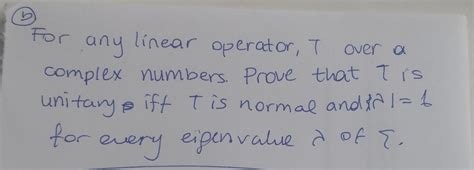 b
For any linear operator, T over a
complex numbers. Prove that T is
unitary iff T is normal and |λ| = 1
for every eigenvalue λ of T.